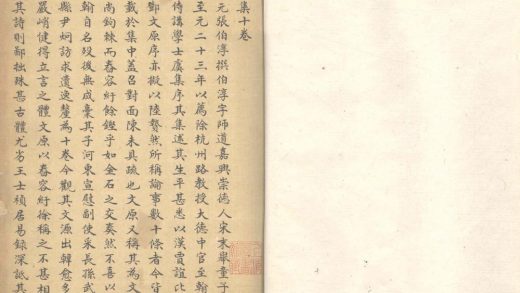 集十卷
元張伯淳撰伯淳字師道嘉興崇德人宋末舉童子
至元二十三年以薦除杭州路教授大德中官至翰
侍講學士虞集序其集述其生平甚悉以漢賈誼比
鄧文原序亦擬以陸贄然所稱論事數十條者今皆
載於集中蓋召對面陳未具疏也文原又稱其為文
尚鉤棘而舂容紆餘鏗乎如金石之交奏然不喜以
翰自名歿後無成稾其子河東宣慰副使采長孫武
縣尹炯訪求遺逸釐為十卷今觀其文源出韓愈多
嚴峭健得立言之體文原以舂容紆徐稱之不甚相
其詩則鄙拙殊甚古體尤劣王士禎居易錄深詆其